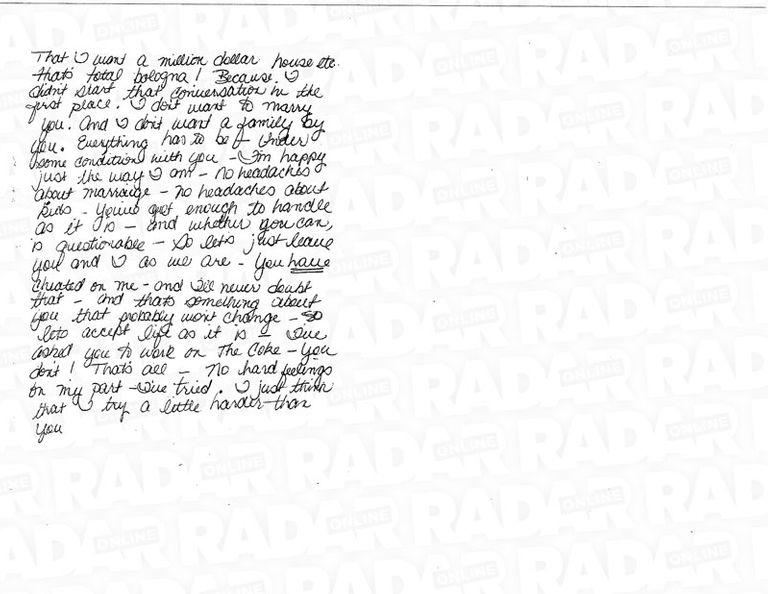 That I want a million dollar house etc.
thats total bologna! Because. I
didn't start that conversation in the
first place. I don't want to marry
you. And I don't want a family by
you. Everything has to be - Under
some condition with you - I'm happy
just the way I am - no headaches
about marraige - no headaches about
kids - Youve got enough to handle
as it is - and whether you can,
is questionable - So lets just leave
you and I as we are - You have
cheated on me - and I'll never doubt
that - and thats something about
you that probably won't change - so
lets accept life as it is - I've
asked you to work on the Coke - you
don't! That's all - No hard feelings
on my part - I've tried. I just think
that I try a little harder than
you
RADAR ONLINE